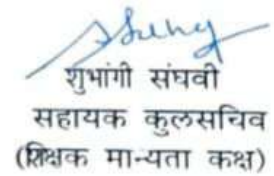 शुभांगी संघवी
सहायक कुलसचिव
(शिक्षक मान्यता कक्ष)